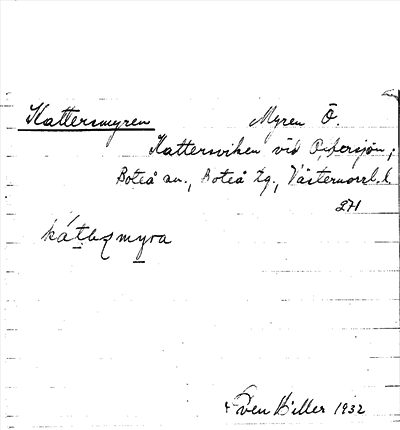 Kattersmyren Myren Ö.
Kattersviken vid Offersjön;
Boteå sn., Boteå tg., Västernorrl. l.
kátezmyra
Sven Hiller 1932